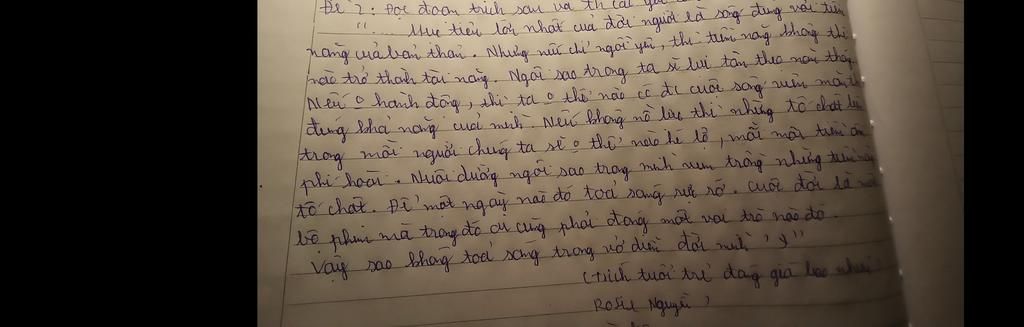 Đề 2: Đọc đoạn trích sau và
"... Mục tiêu lớn nhất của đời người là sống đúng với tiềm
năng của bản thân. Nhưng nếu chỉ ngồi yên, thì tiềm năng không thể
nào trở thành tài năng. Ngôi sao trong ta sẽ lụi tàn theo năm tháng
Nếu o hành động, thì ta o thể nào có đc cuộc sống viên mãn
đúng khả năng của mình. Nếu không nỗ lực thì những tố chất
trong mỗi người chúng ta sẽ o thể nào hé lộ, mãi mãi tiềm ẩn
phí hoài. Nuôi dưỡng ngôi sao trong mình vun trồng những
tố chất. Để một ngày nào đó toả sáng rực rỡ. Cuộc đời là một
bộ phim mà trong đó ai cũng phải đóng một vai trò nào đó.
Vậy sao không toả sáng trong vở diễn đời mình
(Trích tuổi trẻ đáng giá bao nhiêu
Rosie Nguyễn)